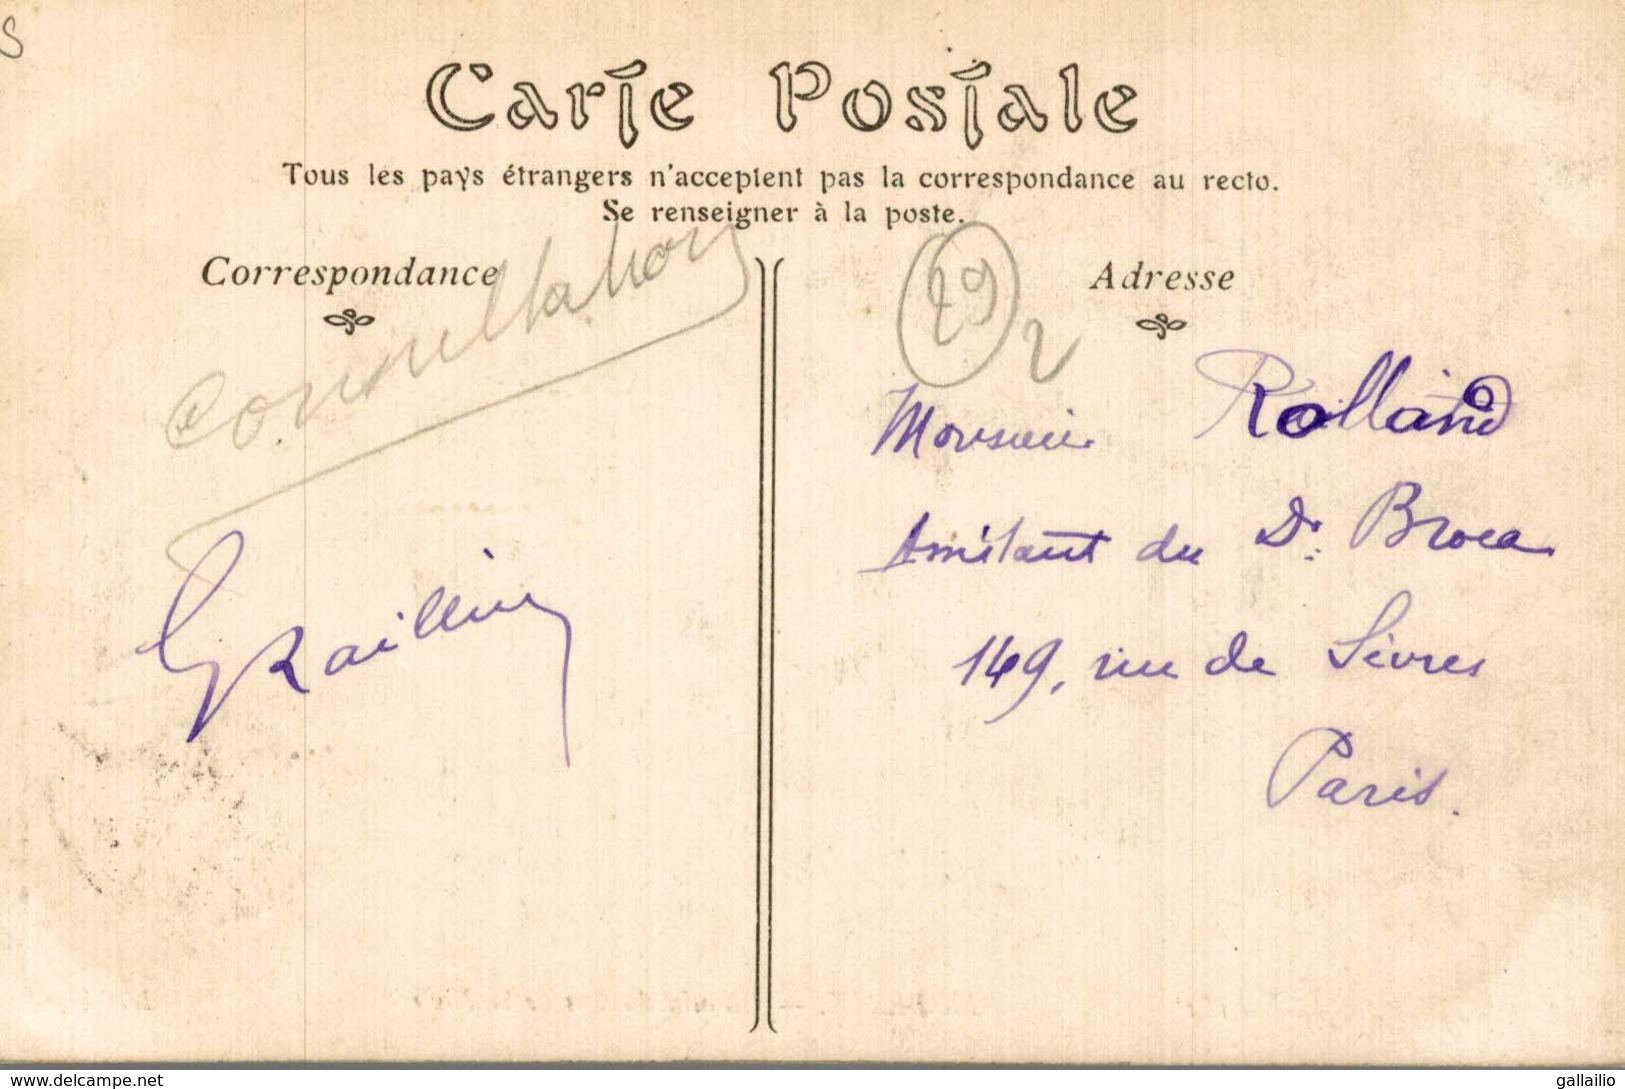 S
Carte Postale
Tous les pays étrangers n'acceptent pas la correspondance au recto.
Se renseigner à la poste.
Correspondance
Adresse
29
2
Monsieur Rolland
Assistant du Dr. Broca
149, rue de Sèvres
Paris.
www.delcampe.net
gallailio